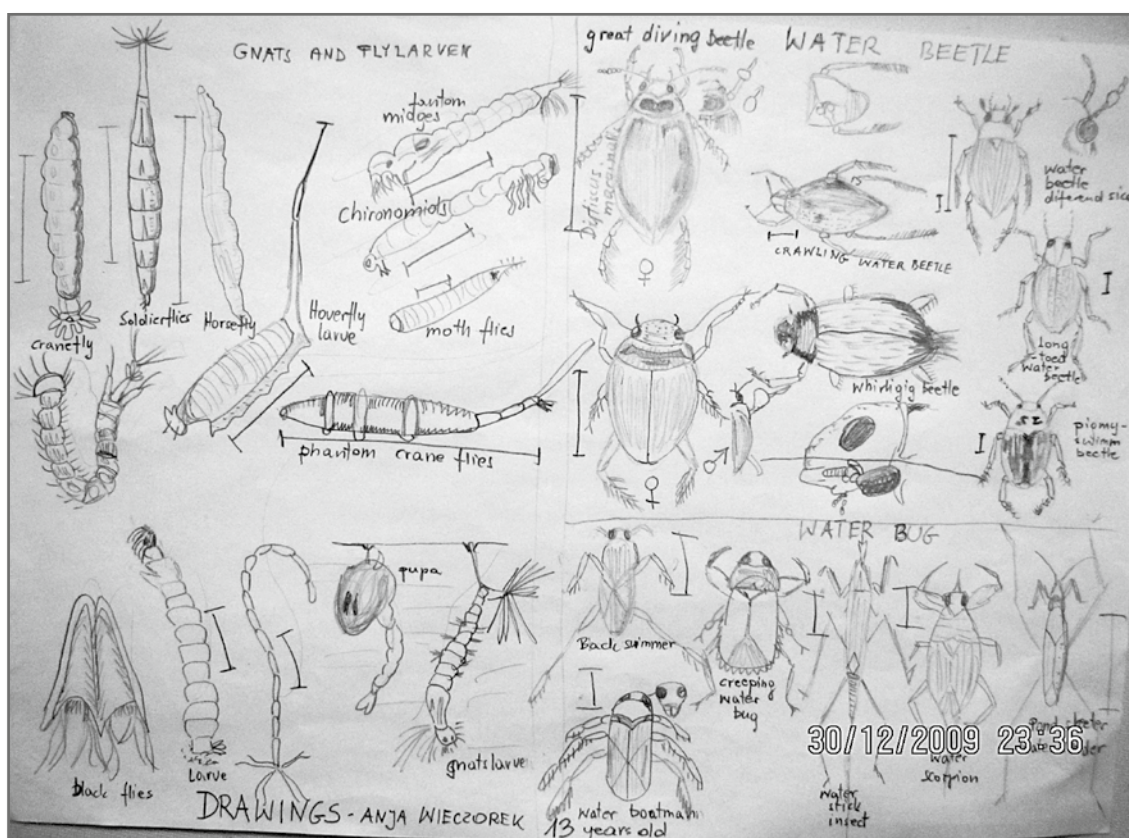 GNATS AND FLYLARVEN
fantom
midges
chironomids
moth flies
cranefly
Soldierflies
Horsefly
Hoverfly
larve
phantom crane flies
black flies
Larve
pupa
gnatslarve
DRAWINGS - ANJA WIECZOREK
13 years old
great diving beetle
WATER BEETLE
♂
♀
water
beetle
diferend sice
CRAWLING WATER BEETLE
long
-toed
water
beetle
whirligig beetle
♂
♀
swimm
beetle
WATER BUG
Back swimmer
creeping
water
bug
water boatmann
water
stick
insect
water
scorpion
30/12/2009 23:36